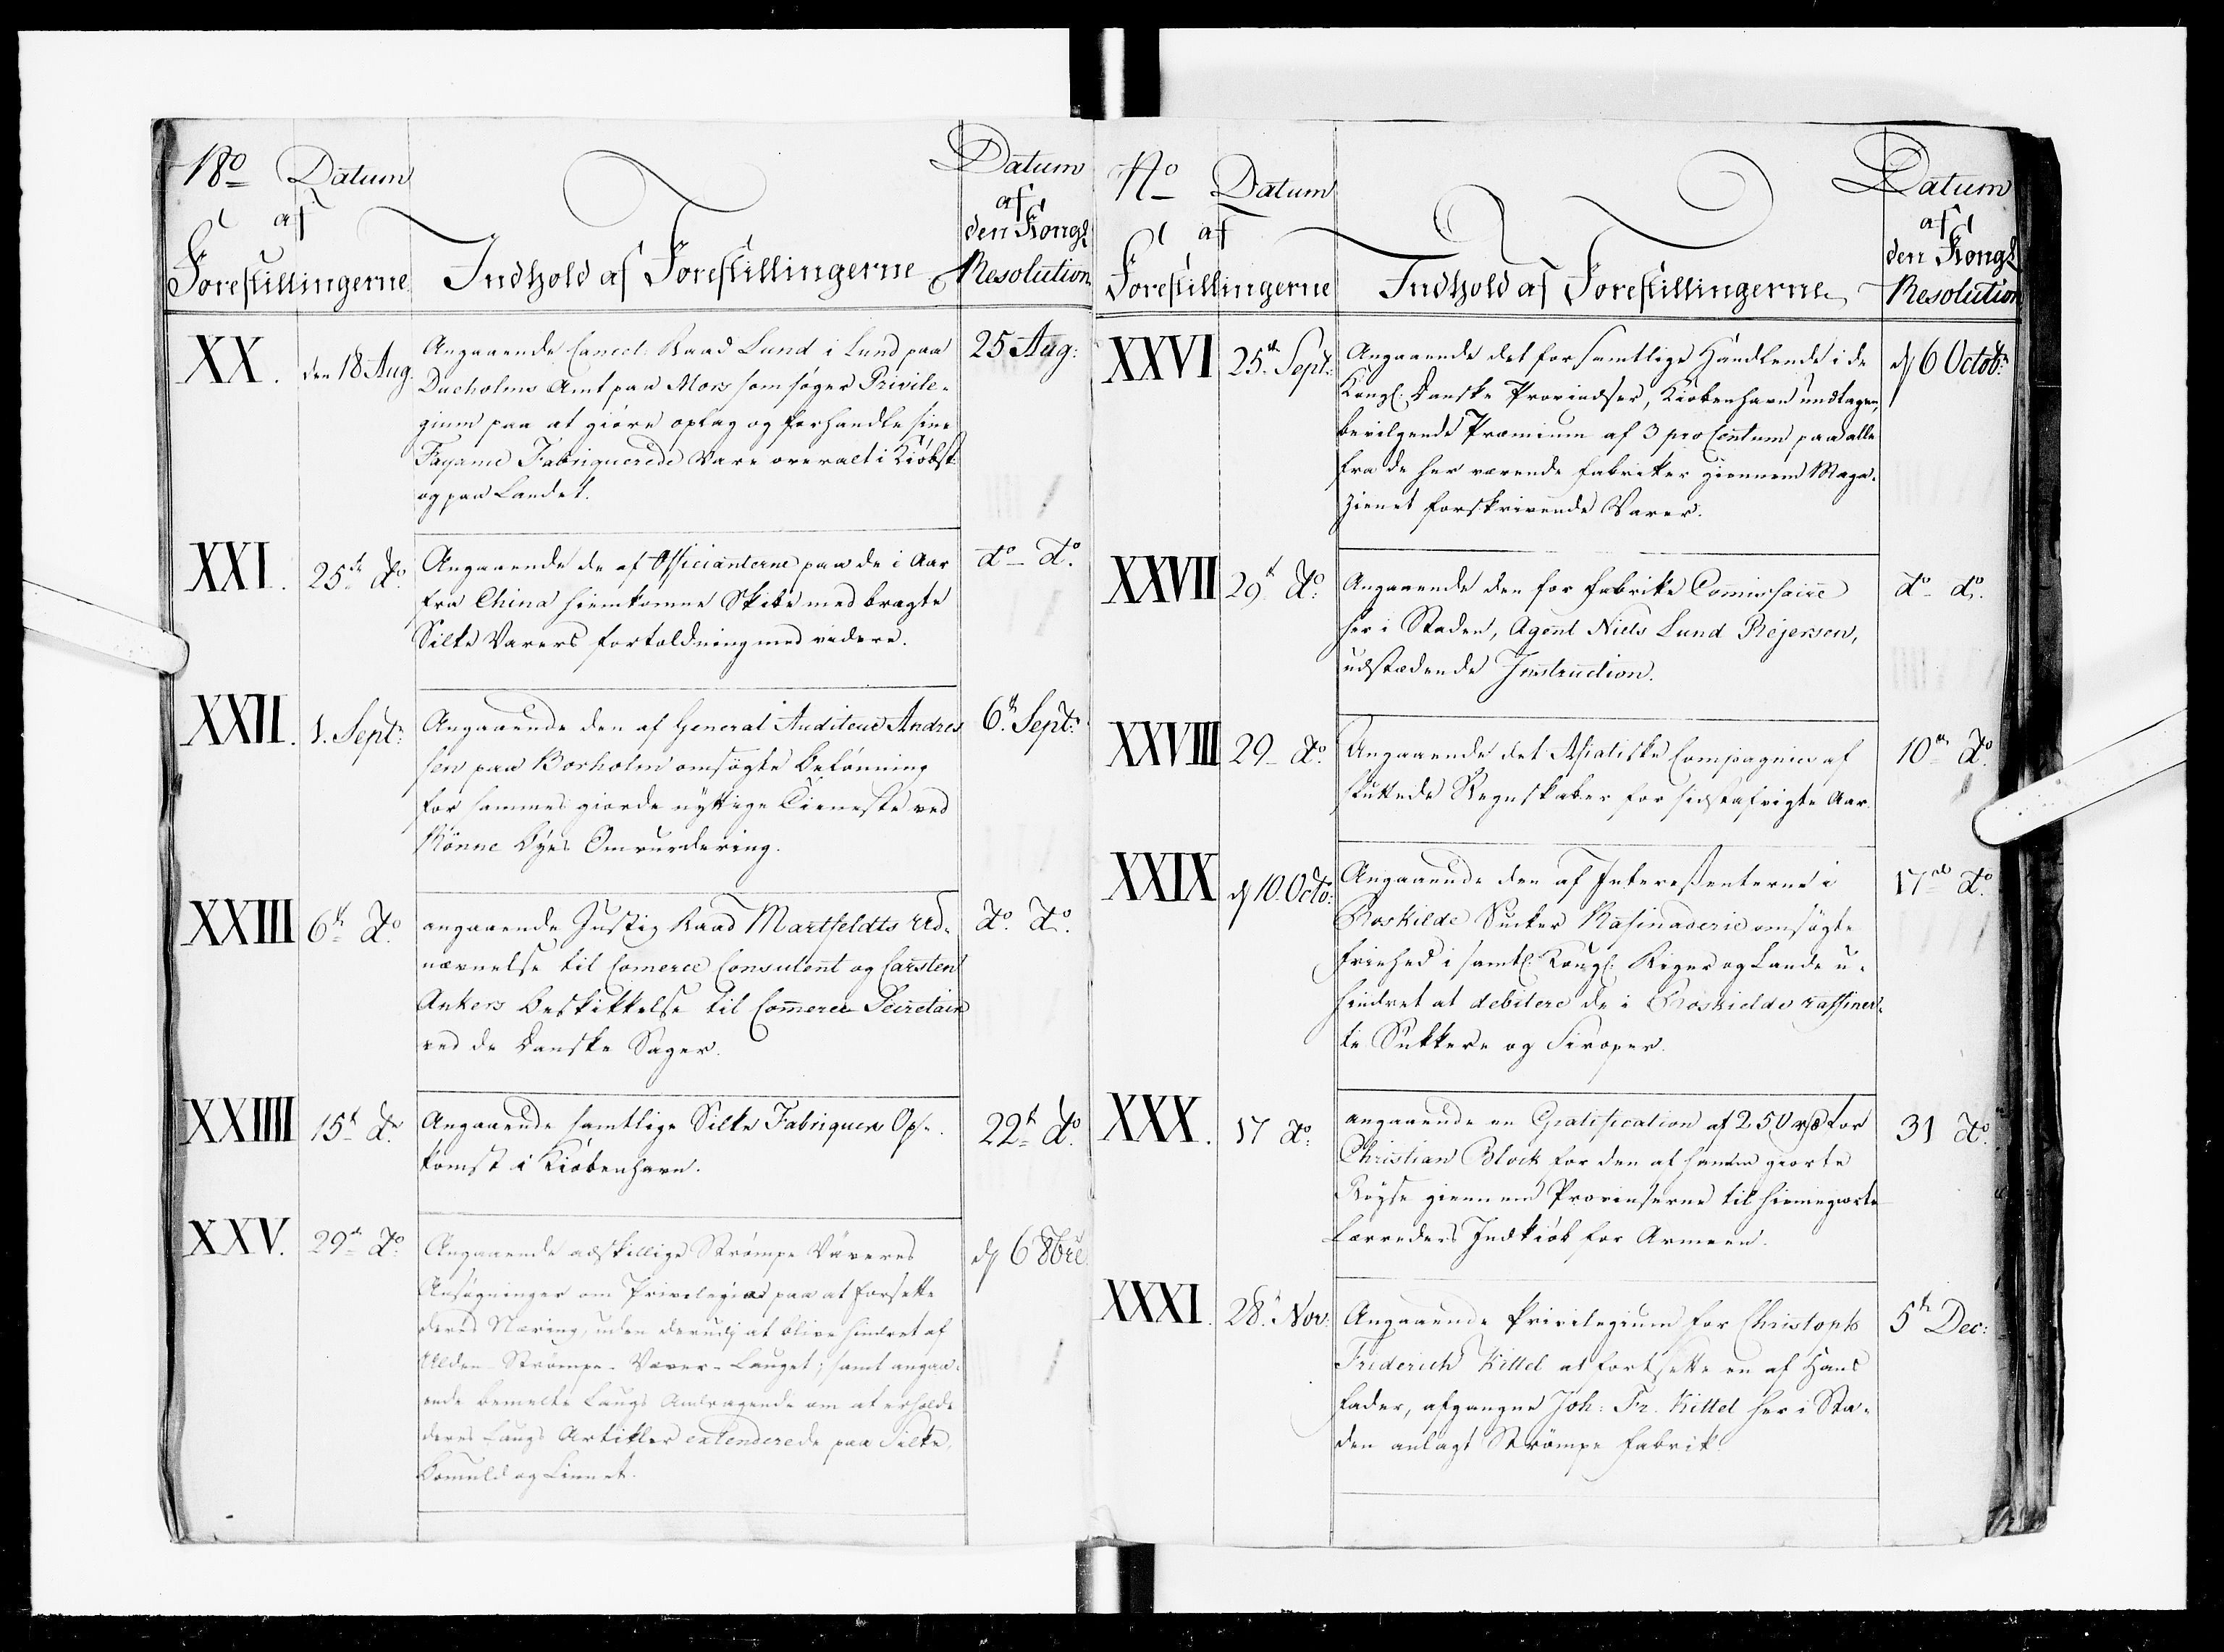 No Datum
af
Forestillingerne
Indhold af Forestillingerne
Datum
af
den Kongl
Resolution
XX. den 18 Aug. 25 Aug:
Angaaende Cancel: Raad Lund i Lund paa
Dueholms Amt paa Mors som søger Privile-
gium paa at giøre oplag og forhandle sine
Fayance Fabriquerede Vare overalt i Kiøbst:
og paa Landet.
XXI. 25de do. do - do.
Angaaende de af Officianterne paa de i Aar
fra China hiemkomne Skibe med bragte
Silke Varers fortoldning med videre.
XXII. 1. Septr: 6te Septr:
Angaaende den af General Auditeur Andre
sen paa Borholm omsøgte Belønning
for sammes giorde nyttige Tieneste ved
Rönne Byes Omvurdering.
XXIII 6te do. do. do.
angaaende Justiz Raad Martfeldts Ud-
nævnelse til Comerce Consulent og Carsten
Ankers Beskikkelse til Comerce Secretair
ved de Danske Sager.
XXIIII 15te do. 22te do.
Angaaende samtlige Silke Fabriquers Op-
komst i Kiøbenhavn.
XXV. 29de do. d 6 8bre
Angaaende adskillige Strømpe Væveres
Ansøgninger om Privilegier paa at forsette
deres Næring, uden derudj at blive hindret af
Ulden-Strømpe-Væver-Lauget; samt angaa-
ende bemelte Laugs Andragende om at erholde
deres Laugs Artikler extenderede paa Silke,
Bomuld og Linnet.
No Datum
af
Forestillingerne
Indhold af Forestillingerne
Datum
af
den Kongl
Resolution
XXVI 25de Sept: d 6 Octobr:
Angaaende det for samtlige Handlende i de
Kongl: Danske Provindser, Kiøbenhavn undtagen,
bevilgende Præmium af 3 pro Centum paa alle
fra de her værende Fabriker giennem Maga-
zienet forskrivende Varer.
XXVII 29de do. do - do.
Angaaende den for Fabrike Commissaire
her i Staden, Agent Niels Lund Rejersen,
udstædende Instruction.
XXVIII 29 - do. 10de do.
Angaaende det Asiatiske Compagnies af
sluttede Regnskaber for sidstafvigte Aar.
XXIX d 10. Octo: 17de do.
Angaaende den af Interessenterne i
Roskilde Sucker Rafinaderie omsøgte
friehed i samtl: Kongl: Riger og Lande u-
hindret at debitere de i Roskielde raffiner-
te Sukkere og Siroper.
XXX. 17 do. 31 do.
angaaende en Gratification af 250 rd for
Christian Block for den af ham giorte
Reyse giennem Provinserne til hiemegiorte
Lærreders Indkiøb for Armeen.
XXXI. 28. Nov: 5te Dec:
Angaaende Privilegium for Christoph
Friderich Kittel at fortsette en af Hans
Fader, afgangne Joh: Fr. Kittel her i Sta-
den anlagt Strømpe Fabrik.